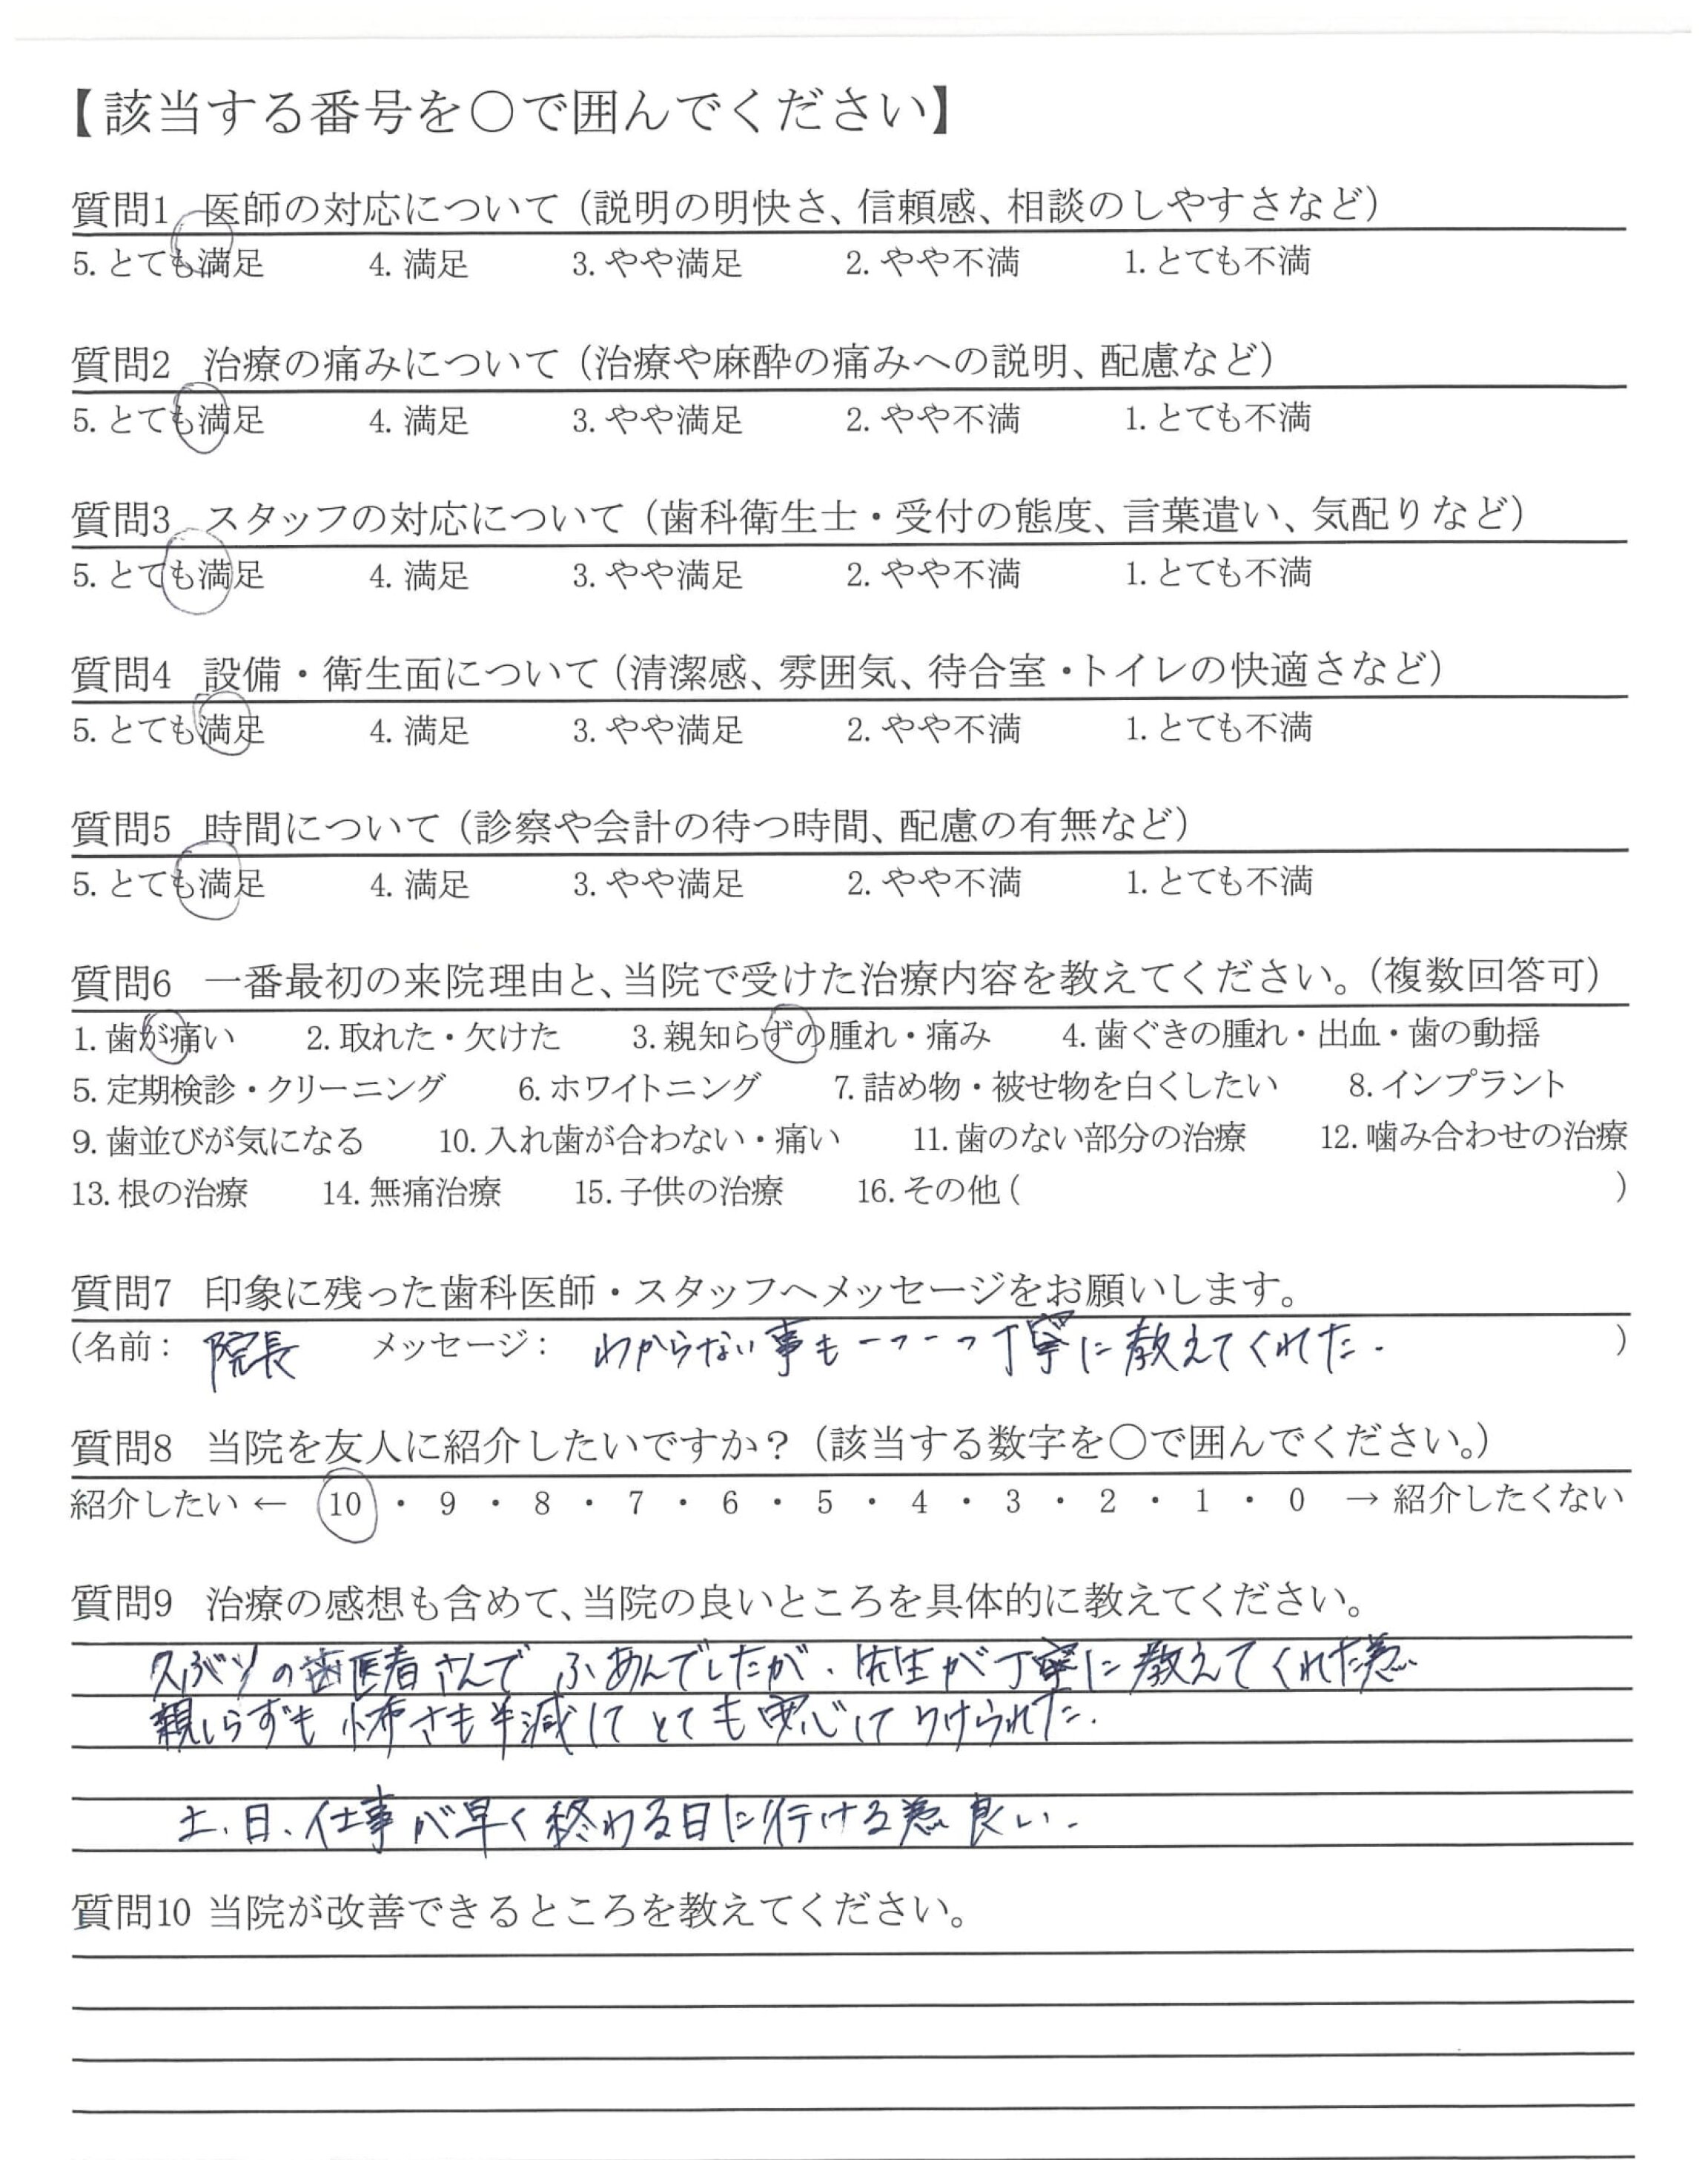 【該当する番号を〇で囲んでください】
質問1 医師の対応について（説明の明快さ、信頼感、相談のしやすさなど）
5. とても満足 4. 満足 3. やや満足 2. やや不満 1. とても不満
質問2 治療の痛みについて（治療や麻酔の痛みへの説明、配慮など）
5. とても満足 4. 満足 3. やや満足 2. やや不満 1. とても不満
質問3 スタッフの対応について（歯科衛生士・受付の態度、言葉遣い、気配りなど）
5. とても満足 4. 満足 3. やや満足 2. やや不満 1. とても不満
質問4 設備・衛生面について（清潔感、雰囲気、待合室・トイレの快適さなど）
5. とても満足 4. 満足 3. やや満足 2. やや不満 1. とても不満
質問5 時間について（診察や会計の待つ時間、配慮の有無など）
5. とても満足 4. 満足 3. やや満足 2. やや不満 1. とても不満
質問6 一番最初の来院理由と、当院で受けた治療内容を教えてください。（複数回答可）
1. 歯が痛い 2. 取れた・欠けた 3. 親知らずの腫れ・痛み 4. 歯ぐきの腫れ・出血・歯の動揺
5. 定期検診・クリーニング 6. ホワイトニング 7. 詰め物・被せ物を白くしたい 8. インプラント
9. 歯並びが気になる 10. 入れ歯が合わない・痛い 11. 歯のない部分の治療 12. 噛み合わせの治療
13. 根の治療 14. 無痛治療 15. 子供の治療 16. その他（ ）
質問7 印象に残った歯科医師・スタッフへメッセージをお願いします。
（名前： 院長 メッセージ： わからない事も一つ一つ丁寧に教えてくれた. ）
質問8 当院を友人に紹介したいですか？（該当する数字を〇で囲んでください。）
紹介したい ← 10 ・ 9 ・ 8 ・ 7 ・ 6 ・ 5 ・ 4 ・ 3 ・ 2 ・ 1 ・ 0 → 紹介したくない
質問9 治療の感想も含めて、当院の良いところを具体的に教えてください。
久ぶりの歯医者さんで ふあんでしたが、先生が丁寧に教えてくれた為
親しらずも 怖さも半減してとても安心してうけられた.
土、日、仕事が早く終わる日に行ける為良い.
質問10 当院が改善できるところを教えてください。